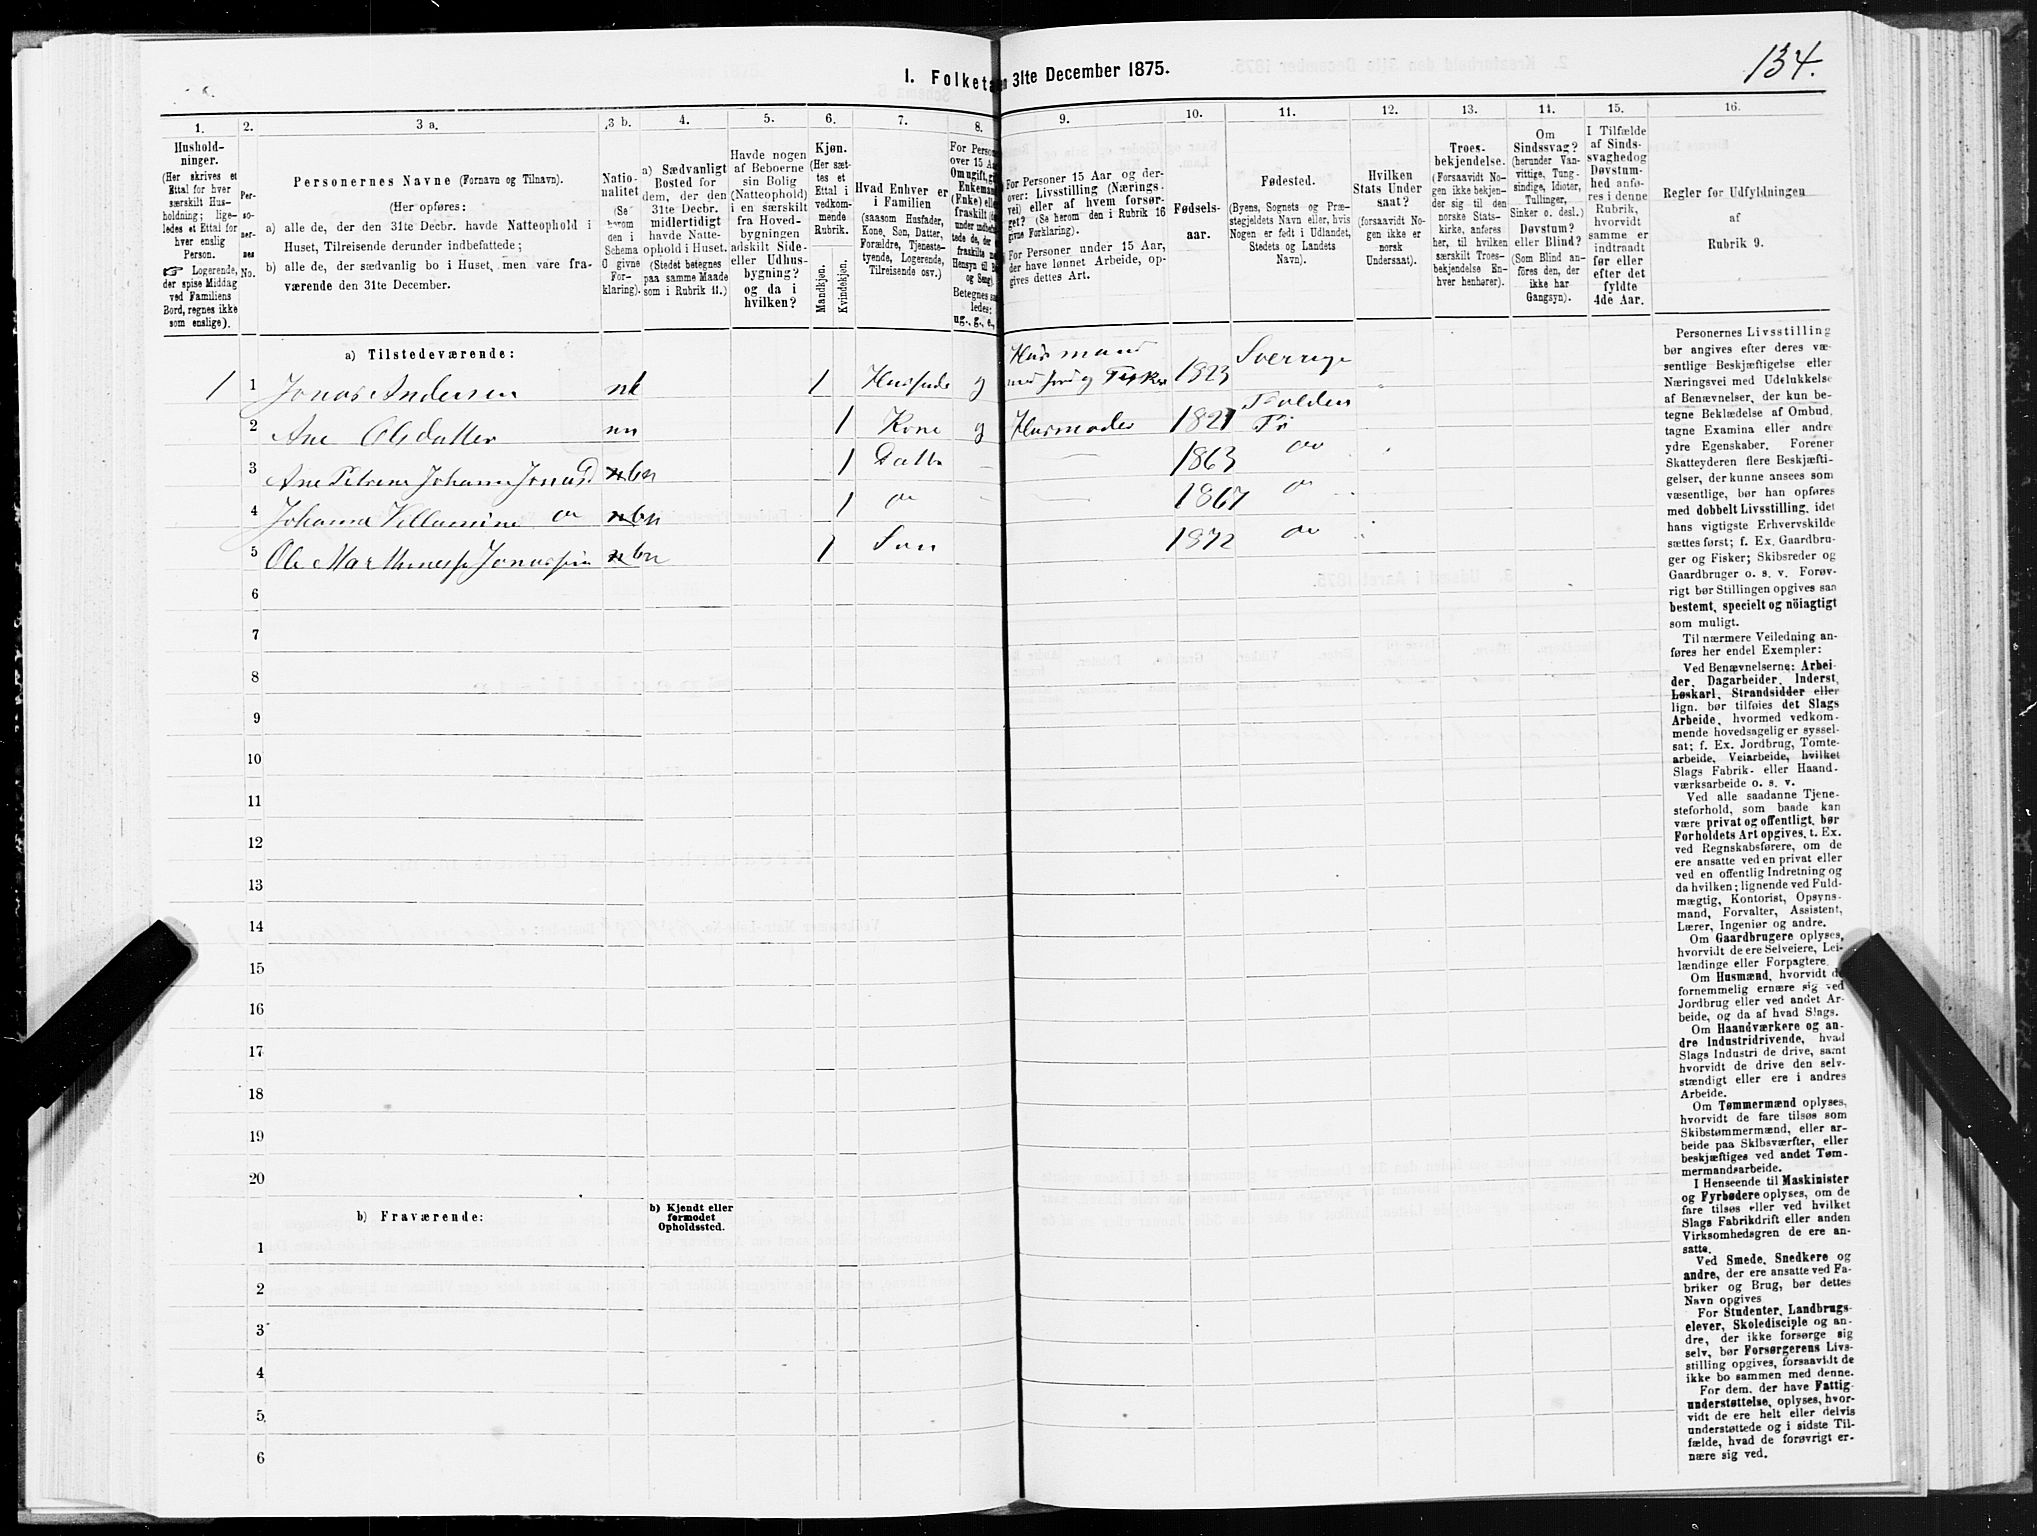 134.
I. Folketa en 31te December 1875.
1. 2. 3 a. 3 b. 4. 5. 6. 7. 8. 9. 10. 11. 12. 13. 14. 15. 16.
Hushold-
ninger.
(Her skrives et
Ettal for hver
særskilt Hus-
holdning; lige-
ledes et Ettal for
hver enslig
Person.
☞ Logerende,
der spise Middag
ved Familiens
Bord, regnes ikke
som enslige).
Per-
so-
ner-
nes
No.
Personernes Navne (Fornavn og Tilnavn).
(Her opføres:
a) alle de, der den 31te Decbr. havde Natteophold i
Huset, Tilreisende derunder indbefattede;
b) alle de, der sædvanlig bo i Huset, men vare fra-
værende den 31te December.
Natio-
nalitet
(Se
herom
den i
Schema
6 givne
For-
klaring).
a) Sædvanligt
Bosted for
dem, der den
31te Decbr.
midlertidigt
havde Natte-
ophold i Huset.
(Stedet betegnes
paa samme Maade
som i Rubrik 11.)
Havde nogen
af Beboerne
sin Bolig
(Natteophold)
i en særskilt
fra Hoved-
bygningen
adskilt Side-
eller Udhus-
bygning?
og da i
hvilken?
Kjøn.
(Her sæt-
tes et
Ettal i
vedkom-
mende
Rubrik.
Mandkjøn.
Kvindekjøn.
Hvad Enhver er
i Familien
(saasom Husfader,
Kone, Søn, Datter,
Forældre, Tjeneste-
tyende, Logerende,
Tilreisende osv.)
For Person
over 15 Aa
Om ugift, gi
Enkemand
(Enke) elle
fraskilt
Betegnes saa
ledes:
ug., g., e.,
For Personer 15 Aar og der-
over: Livsstilling (Nærings-
vei) eller af hvem forsør-
get? (Se herom den i Rubrik 16
givne Forklaring).
For Personer under 15 Aar,
der have lønnet Arbeide, op-
gives dettes Art.
Fødsels-
aar.
Fødested.
(Byens, Sognets og Præ-
stegjeldets Navn eller, hvis
Nogen er født i Udlandet,
Stedets og Landets
Navn).
Hvilken
Stats Under
saat?
(forsaavidt No-
gen ikke er
norsk
Undersaat).
Troes-
bekjendelse.
(Forsaavidt No-
gen ikke bekjen-
der sig til den
norske Stats-
kirke, anføres
her, til hvilken
særskilt Troes-
bekjendelse En-
hver henhører).
Om
Sindssvag?
(herunder Van-
vittige, Tung-
sindige, Idioter,
Tullinger,
Sinker o. desl.)
Døvstum?
eller Blind?
(Som Blind an-
føres den, der
ikke har
Gangsyn).
I Tilfælde
af Sinds-
svaghed og
Døvstum-
hed anfø-
res i denne
Rubrik,
hvorvidt
samme er
indtraadt
før eller
efter det
fyldte
4de Aar.
Regler for Udfyldningen
af
Rubrik 9.
a) Tilstedeværende:
1 1 Jonas Andersen nk 1 g Husmand 1823 Sverrige
2 Ane Olsdatter nn 1 Kone g Husmoder 1821
3 Ane Petrine Johanne 1 1863
4 Johanna 1 1867
5 Ole 1 Søn 1872
6
7
8
9
10
11
12
13
14
15
16
17
18
19
20
b) Fraværende:
b) Kjendt eller
formodet
Opholdssted.
1
2
3
4
5
6
Personernes Livsstilling
bør angives efter deres væ-
sentlige Beskjæftigelse eller
Næringsvei med Udelukkelse
af Benævnelser, der kun be-
tegne Beklædelse af Ombud,
tagne Examina eller andre
ydre Egenskaber. Forener
Skatteyderen flere Beskjæfti-
gelser, der kunne ansees som
væsentlige, bør han opføres
med dobbelt Livsstilling, idet
hans vigtigste Erhvervskilde
sættes først; f. Ex. Gaardbru-
ger og Fisker; Skibsreder og
Gaardbruger o. s. v. Forøv-
rigt bør Stillingen opgives saa
bestemt, specielt og nöiagtigt
som muligt.
Til nærmere Veiledning an-
føres her endel Exempler:
Ved Benævnelserne: Arbei-
der, Dagarbeider, Inderst,
Løskarl, Strandsidder eller
lign. bør tilføies det Slags
Arbeide, hvormed vedkom-
mende hovedsagelig er syssel-
sat; f. Ex. Jordbrug, Tomte-
arbeide, Veiarbeide, hvilket
Slags Fabrik- eller Haand-
værksarbeide o. s. v.
Ved alle saadanne Tjene-
steforhold, som baade kan
være privat og offentligt, bør
Forholdets Art opgives, t. Ex.
ved Regnskabsførere, om de
ere ansatte ved en privat eller
ved en offentlig Indretning og
da hvilken; lignende ved Fuld-
mægtig, Kontorist, Opsyns-
mand, Forvalter, Assistent,
Lærer, Ingeniør og andre.
Om Gaardbrugere oplyses,
hvorvidt de ere Selveiere, Lei-
lændinge eller Forpagtere.
Om Husmænd, hvorvidt de
fornemmelig ernære sig ved
Jordbrug eller ved andet Ar-
beide, og da af hvad Slags.
Om Haandværkere og an-
dre Industridrivende, hvad
Slags Industri de drive, samt
hvorvidt de drive den selv-
stændigt eller ere i andres
Arbeide.
Om Tømmermænd oplyses,
hvorvidt de fare tilsøs som
Skibstømmermænd, eller ar-
beide paa Skibsværfter, eller
beskjæftiges ved andet Tøm-
mermandsarbeide.
I Henseende til Maskinister
og Fyrbødere oplyses, om de
fare tilsøs eller ved hvilket
Slags Fabrikdrift eller anden
Virksomhedsgren de ere an-
satte.
Ved Smede, Snedkere og
andre, der ere ansatte ved Fa-
briker og Brug, bør dettes
Navn opgives
For Studenter, Landbrugs-
elever, Skoledisciple og an-
dre, der ikke forsørge sig
selv, bør Forsørgerens Livs-
stilling opgives, forsaavidt de
ikke bo sammen med denne.
For dem, der have Fattig-
understøttelse, oplyses, hvor-
vidt de ere helt eller delvis
understøttede og i sidste Til-
fælde, hvad de forøvrigt er-
nære sig ved.